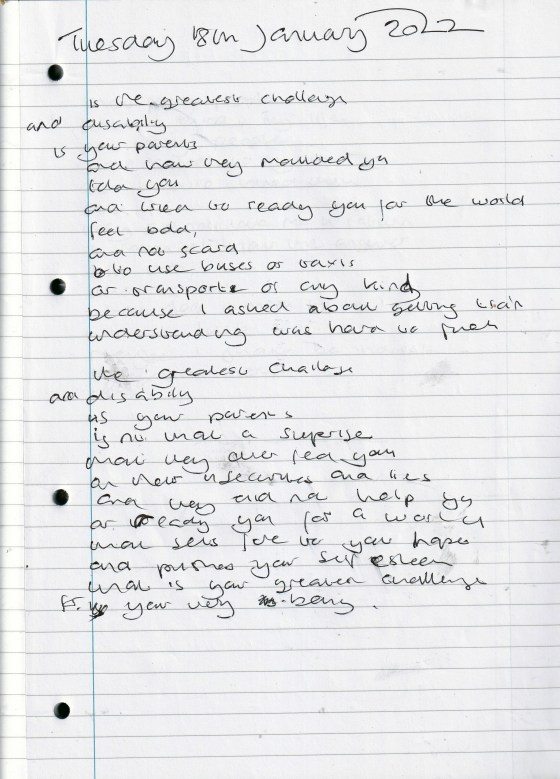 Tuesday 18th January 2022
is the greatest challenge
and disability
is your parents
and how they moulded you
told you
and tried to ready you for the world
feel bold,
and not scard
to use buses or taxis
or transport of any kind
because I asked about getting train
understanding was hard to find
the greatest challenge
and disability
is your parents
is no what a surprise
that they over fed you
on their insecurities and lies
and they did not help you
or ready you for a world
that sets fire to your hopes
and pushes your self esteem
that is your greatest challenge
your very being.